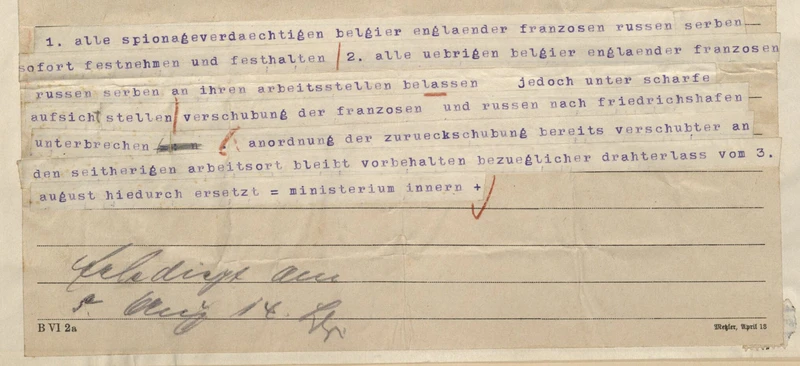 1. alle spionageverdaechtigen belgier englaender franzosen russen serben
sofort festnehmen und festhalten / 2. alle uebrigen belgier englaender franzosen
russen serben an ihren arbeitsstellen belassen jedoch unter scharfe
aufsich stellen / verschubung der franzosen und russen nach friedrichshafen
unterbrechen anordnung der zurueckschubung bereits verschubter an
den seitherigen arbeitsort bleibt vorbehalten bezueglicher drahterlass vom 3.
august hiedurch ersetzt = ministerium innern +
Erledigt am
5. Aug 14.
B VI 2a
Metzler, April 13